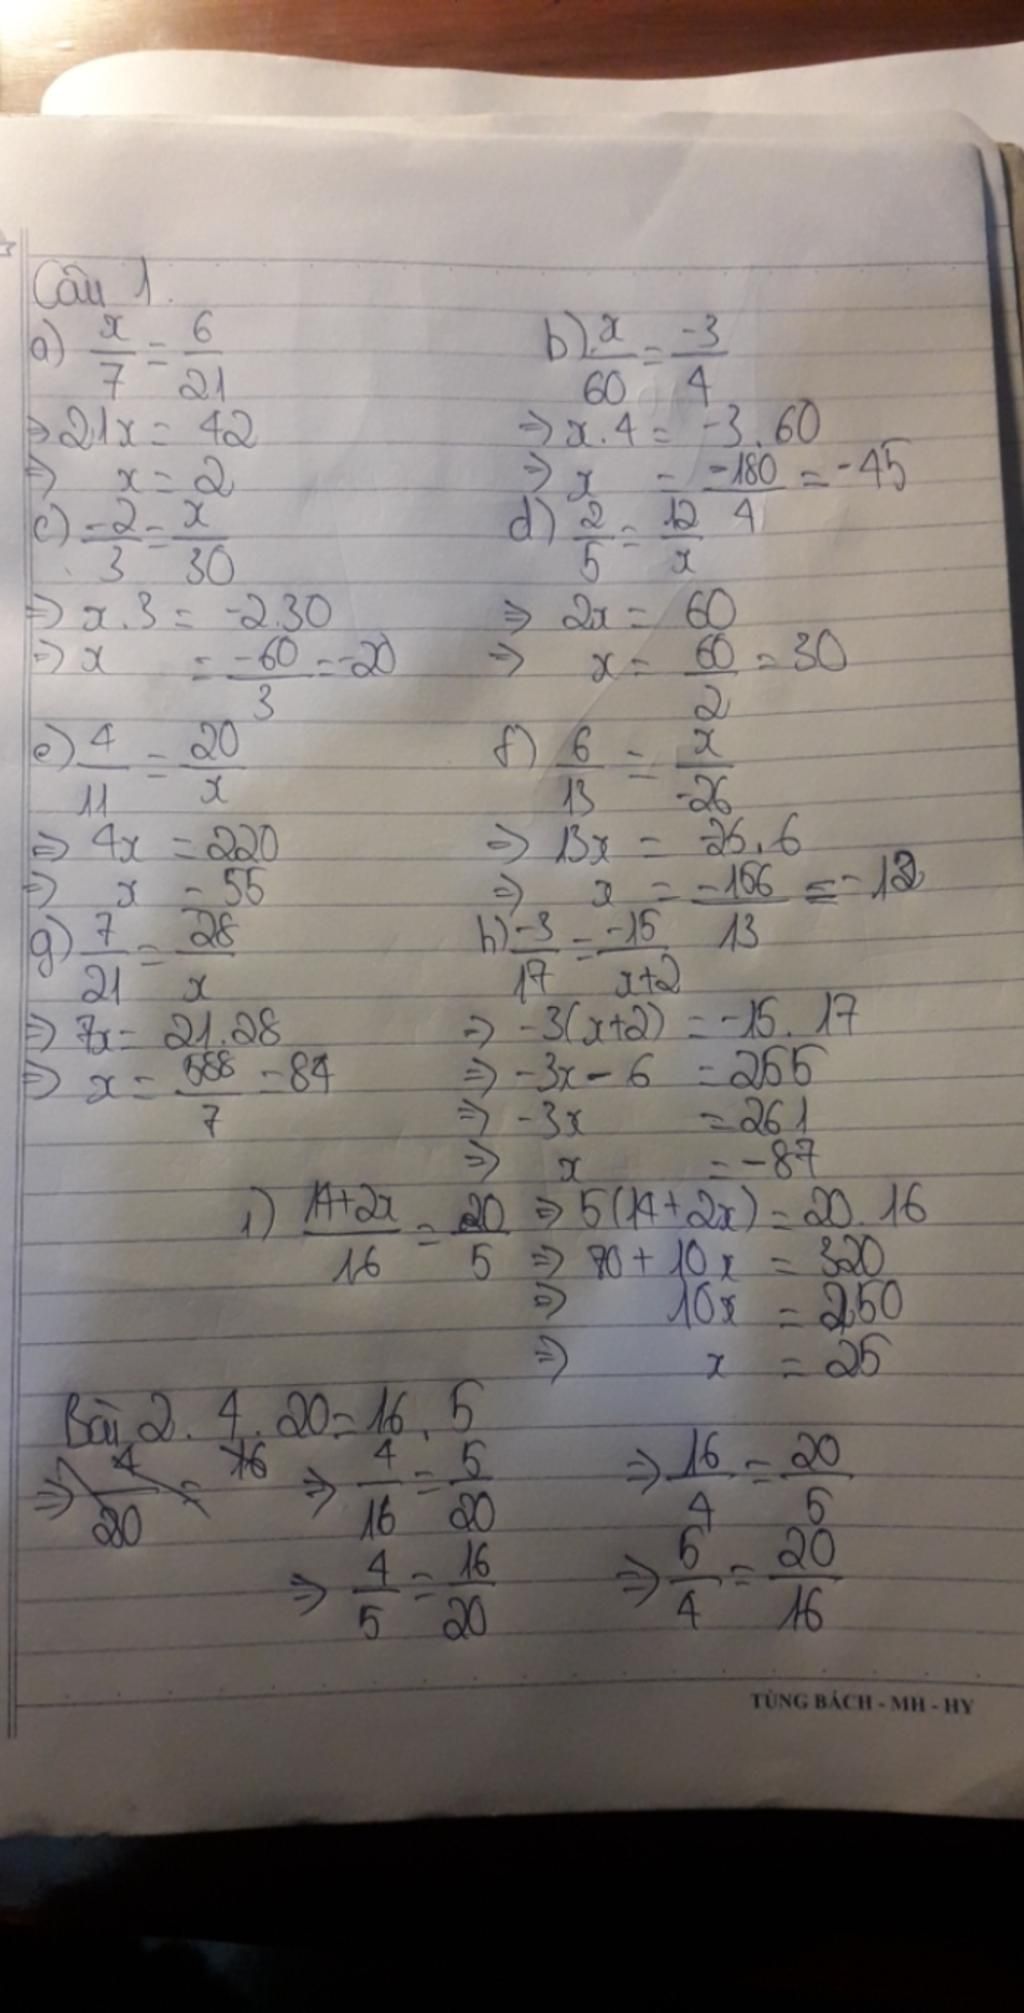 Câu 1.
a) x/7 = 6/21
⇒ 21x = 42
⇒ x = 2
b) x/60 = -3/4
⇒ x.4 = -3.60
⇒ x = -180/4 = -45
c) -2/3 = x/30
⇒ x.3 = -2.30
⇒ x = -60/3 = -20
d) 2/5 = 12/x
⇒ 2x = 60
⇒ x = 60/2 = 30
e) 4/11 = 20/x
⇒ 4x = 220
⇒ x = 55
f) 6/13 = x/-26
⇒ 13x = -26.6
⇒ x = -156/13 = -12
g) 7/21 = 28/x
⇒ 7x = 21.28
⇒ x = 588/7 = 84
h) -3/17 = -15/x+2
⇒ -3(x+2) = -15.17
⇒ -3x - 6 = 255
⇒ -3x = 261
⇒ x = -87
i) 14+2x/16 = 20/5 ⇒ 5(14+2x) = 20.16
⇒ 70 + 10x = 320
⇒ 10x = 250
⇒ x = 25
Bài 2. 4.20 = 16.5
⇒ 4/20 = 16 ⇒ 4/16 = 5/20 ⇒ 16/4 = 20/5
⇒ 4/5 = 16/20 ⇒ 5/4 = 20/16
TÙNG BÁCH - MH - HY